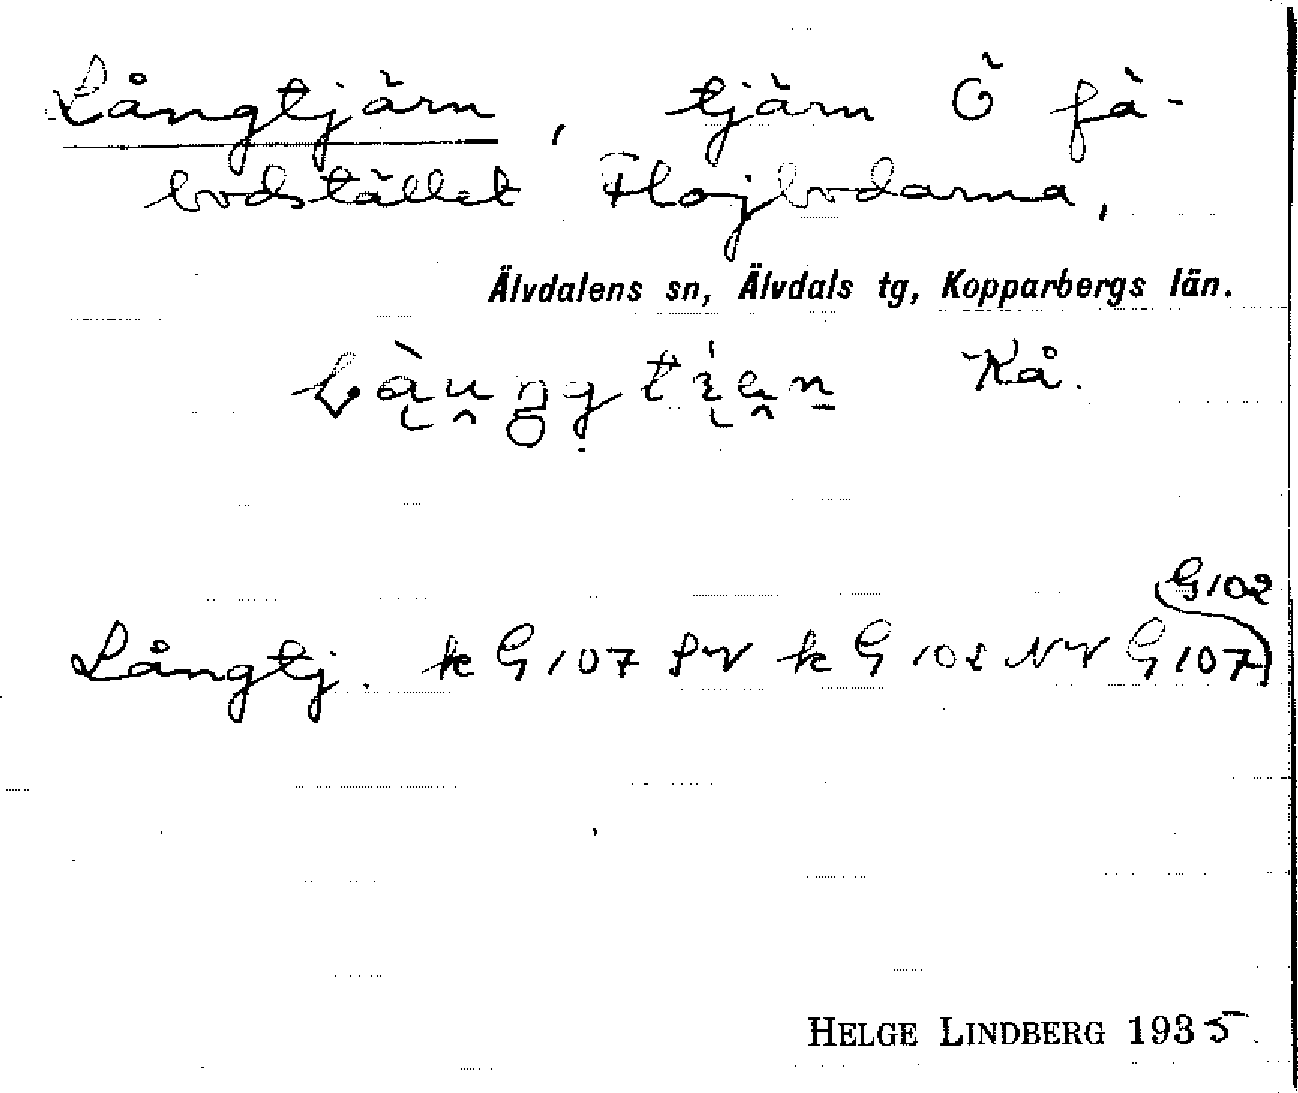 Långtjärn, tjärn Ö fä-
bodstället Flojbodarna,
Älvdalens sn, Älvdals tg, Kopparbergs län.
Kå.
G102
Långtj. k G 107 SV k G 102 NV G 107
HELGE LINDBERG 1935